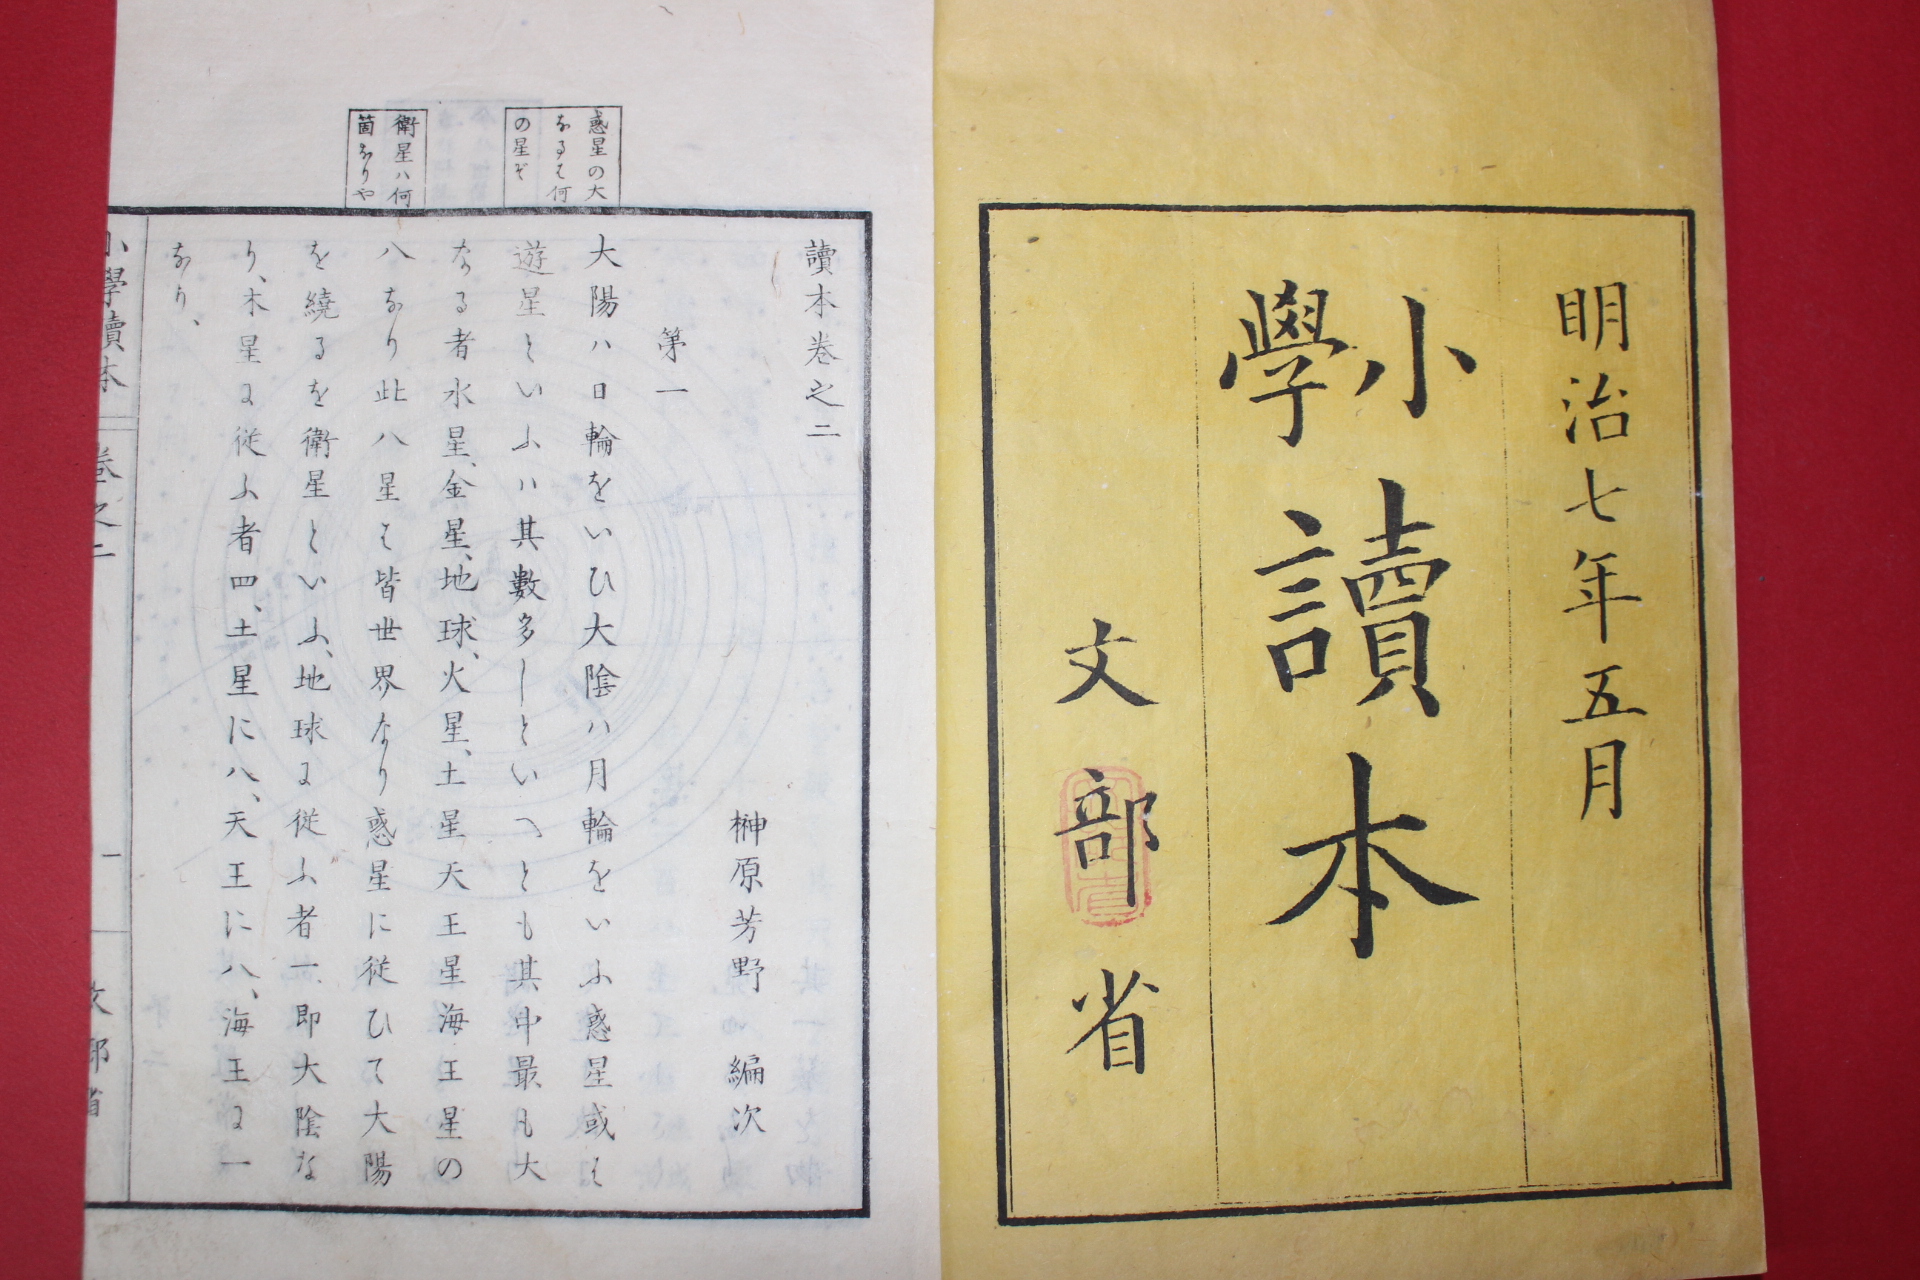 明治七年五月
小學
讀本
文部省
惑星の大
なるは何
の星ぞ
衛星ハ何
箇ありや
讀本巻之二
榊原芳野 編次
第一
大陽ハ日輪をいひ大陰ハ月輪をいふ惑星或は
遊星といふハ其數多しといへとも其中最も大
なる者水星、金星、地球、火星、土星天王星海王星の
八あり此八星は皆世界なり惑星に従ひて大陽
を繞るを衛星といふ、地球に従ふ者一即大陰な
り、木星に従ふ者四、土星に八、天王に八、海王に一
あり、
小學讀本 巻之二 一 文部省